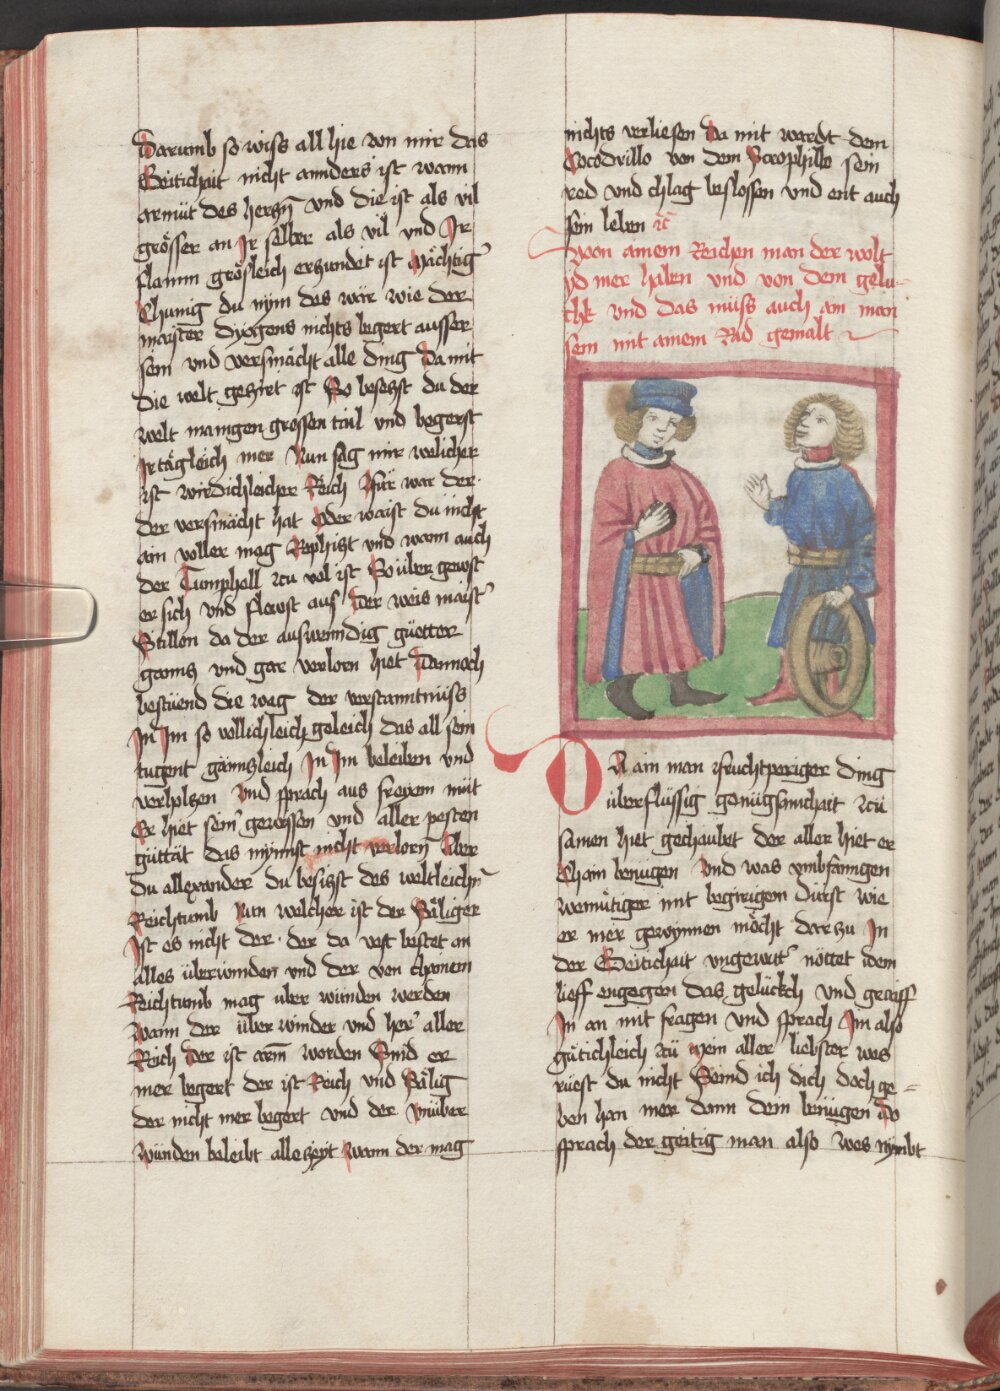 Darumb so wiss all hie von mir das
Geitichait nicht annders ist wann
armüt des herczñ vnd die ist als vil
grösser an Ir selber als vil vnd Ir
flamm grösleich erzundet ist Mächtig
Chunig du nym des war wie der
maister Dyogens nichts begert ausser
sein vnd versmächt alle ding Da mit
die welt geziret ist So besiczst du der
welt maingen grossen tail vnd begerst
Ir tägleich mer Nun sag mir welicher
ist wirdichleicher Reich Für war der
der versmächt hat Oder waist du nicht
ain voller mag Rephiczt vnd wann auch
der Tumphell zu vol ist So über gewst
er sich vnd flewst auf Der weis maist
Stillon da der auswenndig güetter
gancz vnd gar verlorn hiet Dannoch
bestüend die wag der verstanntnüss
In Im so vollichleich geleich das all sein
tugent gännczleich In Im beleiben vnd
verholzen Vnd sprach aus freyem müt
Er hiet sein gewissen vnd aller pesten
güttät das mynnst nicht verlorn Aber
du allexander du besiczst des weltleichñ
Reichtumb Nun welcher ist der Säliger
Ist es nicht der der da vest bestet an
alles überwinden vnd der von chainem
Reichtumb mag uber wunden werden
Wann der über winder vnd her aller
Reich Der ist arm worden Sind er
mer begert der ist Reich vnd Sälig
der nicht mer begert vnd der vnüber
wünden beleibt alleczeyt Wann der mag
nichts verliesen Da mit wardt dem
Cocodrillo von dem Scrophillo sein
red vnd chlag beslossen vnd ent auch
sein leben ꝛc̃
Von ainem Reichen man der wolt
yd mer haben vnd von dem gelu-
ckt vnd das müss auch ain man
sein mit ainem Rad gemalt
DA ain man fruchtperiger ding
überflüssig genügsamchait zü
samen hiet gechaubet der aller hiet er
Chain benügen Vnd was vmbfanngen
wemütiger mit begirigem durst wie
er mer gewynnen möcht dar zu In
der Geitichait vngewit nöttet dem
lieff engegen das gelückch vnd graiff
In an mit fragen vnd sprach Im also
gütichleich zü Mein aller liebster wes
rüest du nicht Seind ich dich doch ge-
ben han mer dann dem benügen Do
sprach der geitig man also wes nymbt